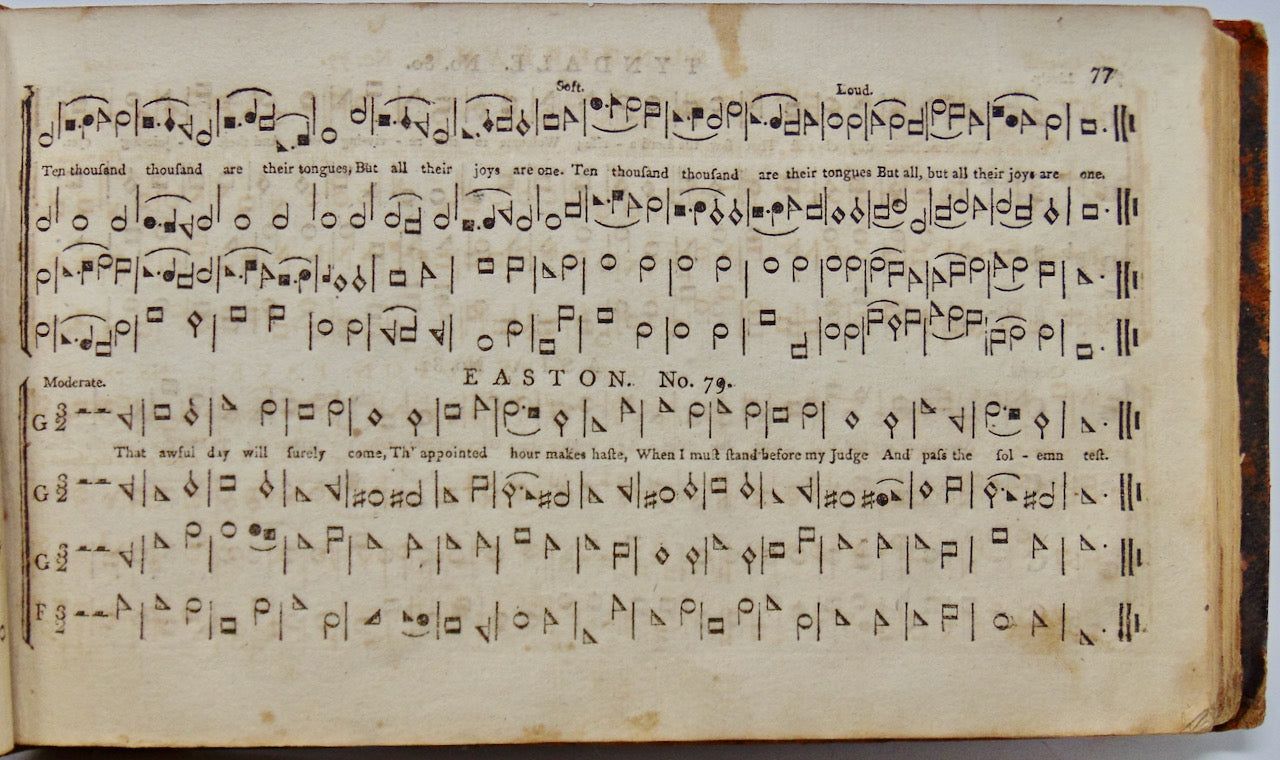 77
Soft. Loud.
Ten thouſand thouſand are their tongues, But all their joys are one. Ten thouſand thouſand are their tongues But all, but all their joys are one.
Moderate. EASTON. No. 79.
G 3 2
That awful day will ſurely come, Th' appointed hour makes haſte, When I muſt ſtand before my Judge And paſs the ſol - emn teſt.
G 3 2
G 3 2
F 3 2